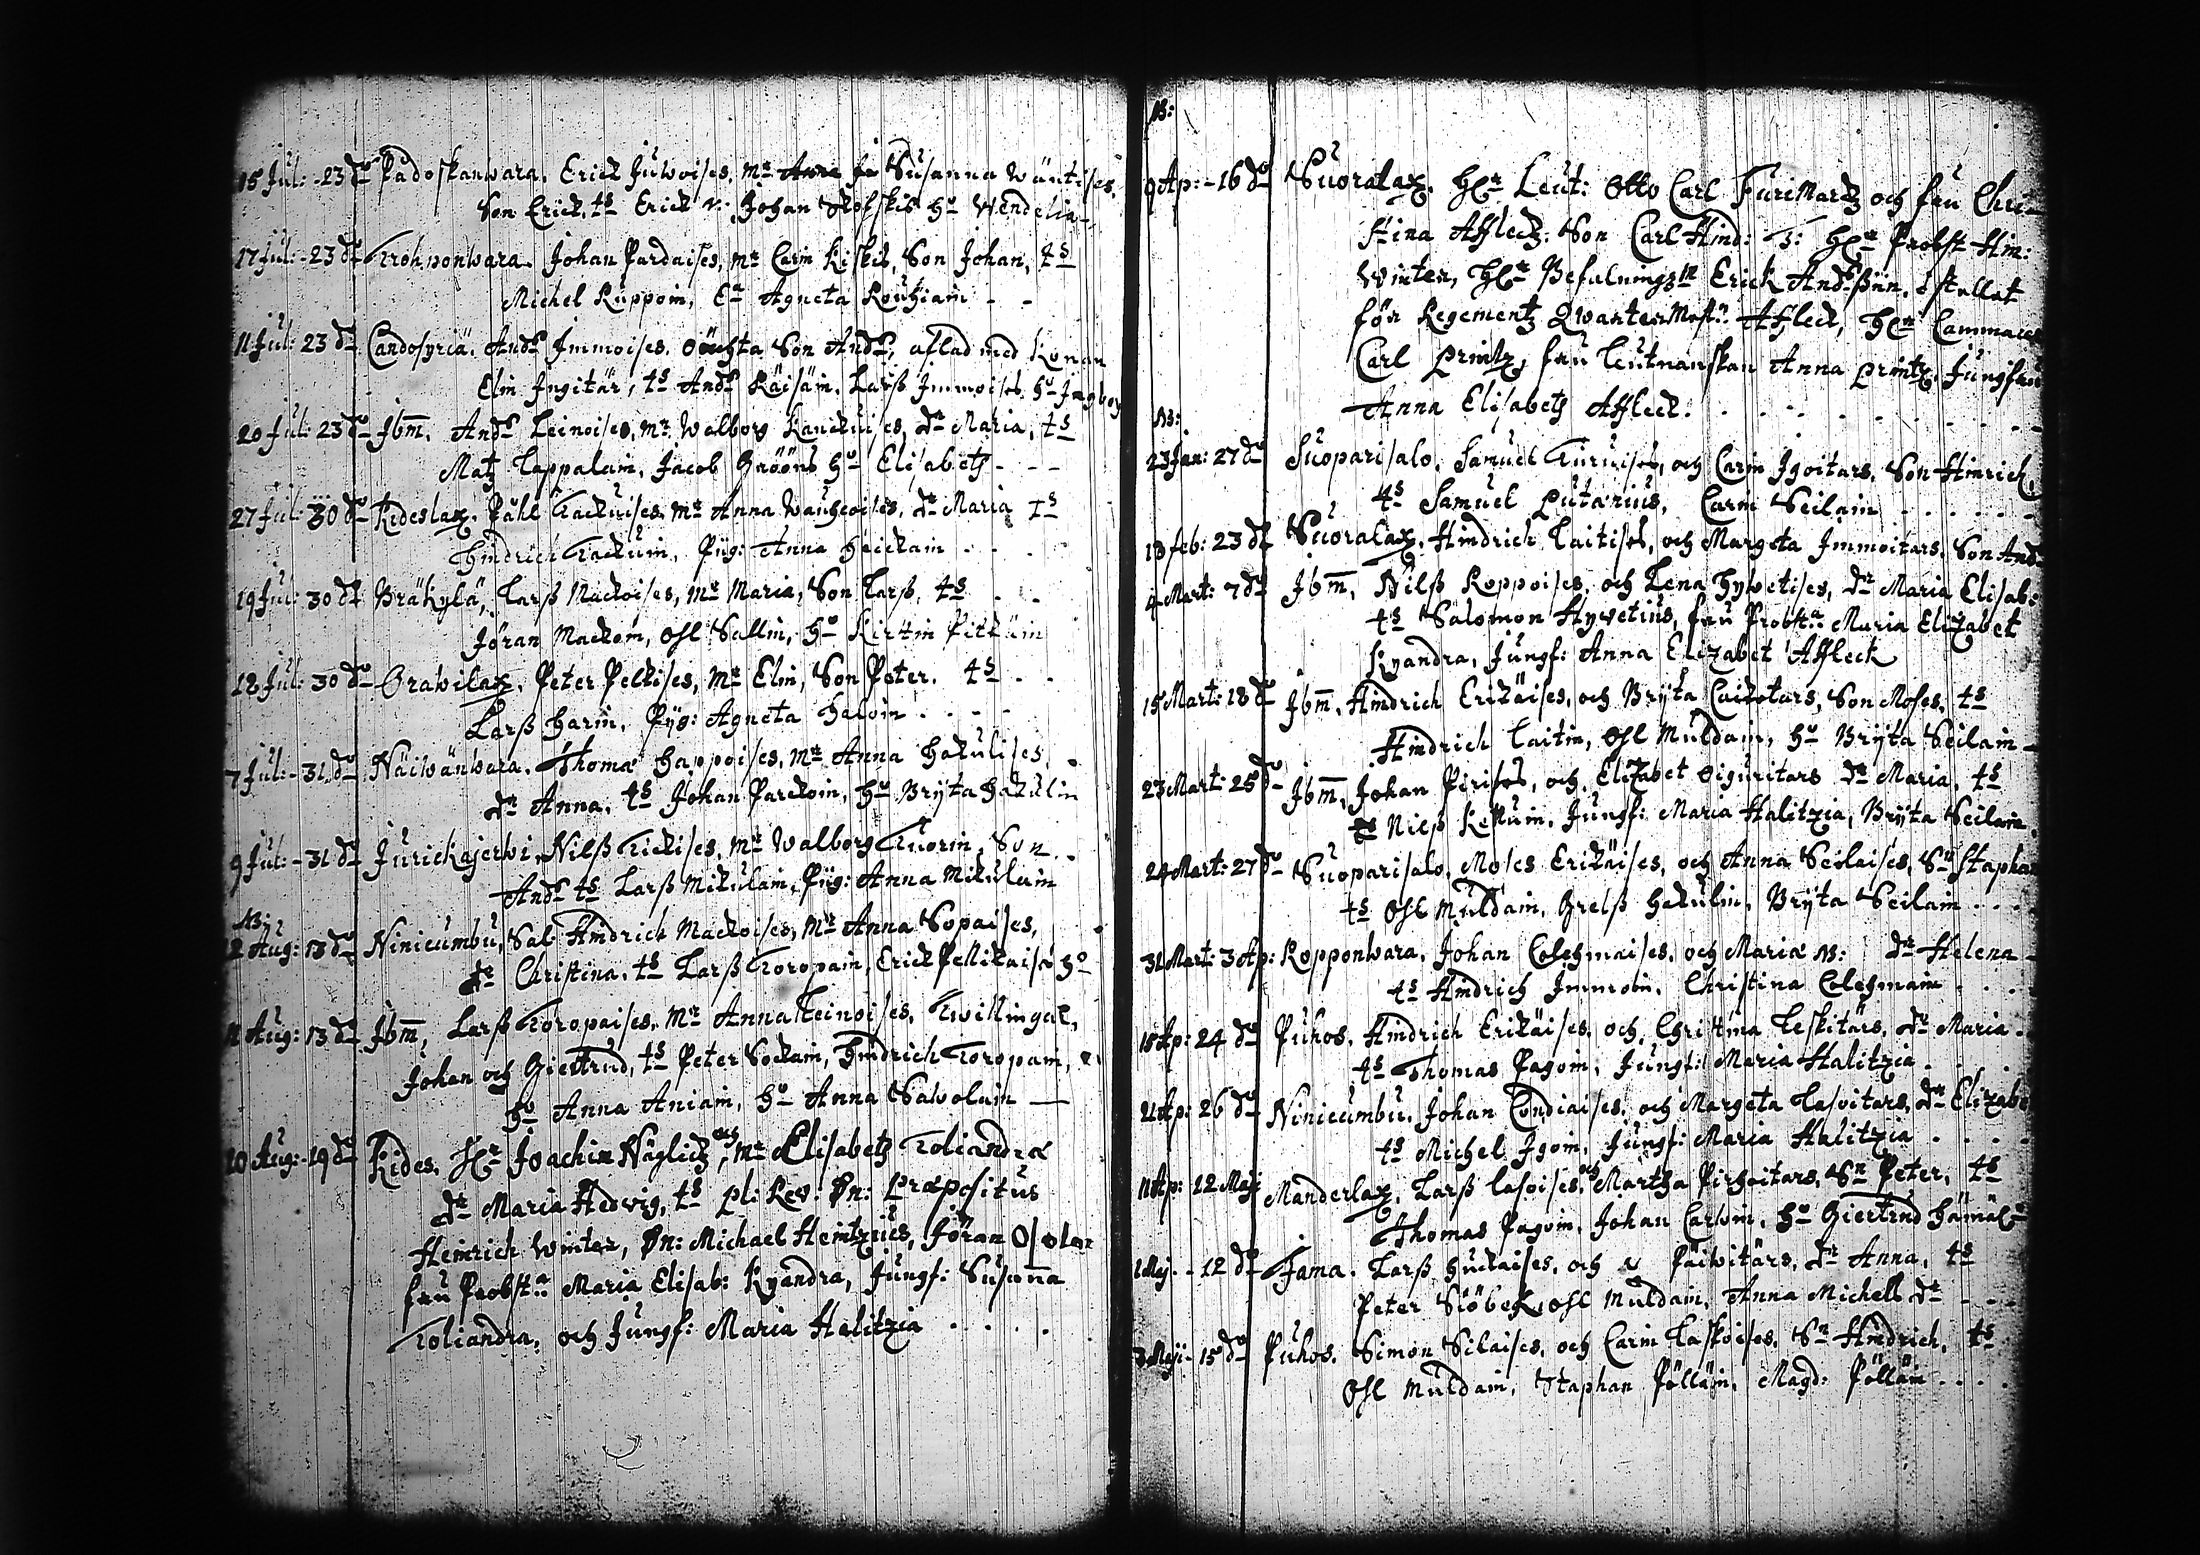 15 Jul: -23 do Padoskanwara. Erick Juwoises, mr Susanna Wäntises.
Son Erick. ts Erick N: Johan Kofskis ho Wendelia
17 Jul: -23 do Trohponwara. Johan Pardaises, mr Carin Kiskis, Son Johan, ts
Michel Ruppoin, Ea Agneta Rouhiain
11 Jul: 23 do Candosyriä. Andrs Immoises. oächta Son Andrs, aflad med Konan
Elin Ingitär, ts Andrs Räisäin. Larß Immoises ho Ingbor
20 Jul: 23 do Ibm. Andrs Leinoises, mr Walborg Kanckuises, dr Maria, ts
Matz Lappalain, Jacob Gröönß ho Elisabeth
27 Jul: 30 do Kideslax. Påhl Tackuises. mr Anna Wauhcoises, dr Maria ts
Hindrich Tackuin. Pig: Anna Heickain
19 Jul: 30 do Bräkylä, Larß Mackoises, mr Maria, Son Larß. ts
Jöran Mackoin, Ohl Sallin, ho Kirstin Pitkäin
12 Jul: 30 do Orawilax. Peter Pelkises, mr Elin, Son Peter. ts
Larß Harin. Pig: Agneta Haloin
7 Jul: -31 do Näiwänwara. Thoma Happoises, mr Anna Hakulises.
dr Anna. ts Johan Parckoin, ho Brÿta Hakulin
9 Jul: -31 do Jurickajerwi. Nilß Tickises. mr Walborg Tuorin. Son
Andrs ts Larß Mikulain, Pig: Anna Mikulain
NB:
2 Aug: 13 do Ninicumbu, Sal: Hindrich Mackoises, mr Anna Sopaises,
dr Christina. ts Larß Toropain, Erick Pellikaisä ho
11 Aug: 13 do Ibm, Larß Toropaises. mr Anna Leinoises. Twillingar,
Johan och Giertrud, ts Peter Sockain, Hindrich Toropain,
ho Anna Aniain, ho Anna Sawolain
10 Aug: -19 do Kides. Hr Joachim Näglick, och mr Elisabeth Toliandra
dr Maria Hedwig, ts pl: Rev: Dn: Præpositus
Heinrich Winter, Dn: Michael Heintzius, Jöran
fru Probsta: Maria Elisab: Kyandra, Jungf: Susanna
Toliandra, och Jungf: Maria Halitzia
NB:
9 Ap: -16 do Suoralax. Hr Leut: Otto Carl Furimartz och fru Chri-
stina Affleck. Son Carl Hind: T: Hr Probst Hin:
Winter, Hr Befalningsn Erick Andrßon. i stellet
för Regementz QwarterMestr Affleck, Hr
Carl Printz, fru Leutnanskan Anna Printz. Jungfru
Anna Elisabeth Affleck.
NB:
23 Jan: 27 do Suoparisalo. Samuel Turuises, och Carin Igoitars. Son Hinrich.
ts Samuel Putanius, Carin Seilain
13 feb: 23 do Suoralax. Hindrich Laitises, och Margeta Immoitars. Son Andrs
4 Mart: 7 do Ibm, Nilß Roppoises. och Lena Hywetises, dr Maria Elisab:
ts Salomon Hywetius, fru Probsta: Maria Elizabet
Kyandra, Jungf: Anna Elizabet Affleck
15 Mart: 18 do Ibm. Hindrich Erikäises, och Brÿta Cuikotars, Son Moses, ts
Hindrich Laitin, Ohl Muldain, ho Brÿta Seilain
23 Mart: 25 do Ibm, Johan Pirises, och Elizabet Oiguritars dr Maria. ts
Nilß Kelluin. Jungf: Maria Halitzia, Brÿta Seilain.
24 Mart: 27 do Suoparisalo. Moses Erikäises, och Anna Seilaises, Sn Staphan
ts Ohl Muldain, Grelß Hakulin, Brÿta Seilain
31 Mart: 3 Ap: Ropponwara, Johan Colehmaises. och Maria NB: dr Helena
ts Hindrich Immoin. Christina Colehmain
18 Ap: 24 do Puhos. Hindrich Erikäises. och Christina Leskitärs, dr Maria.
ts Thomas Pagoin, Jungf: Maria Halitzia
21 Ap: 26 do Ninicumbu. Johan Condiaises. och Margeta Lasoitars, dr Elizabe
ts Michel Igoin. Jungf: Maria Halitzia
11 Ap: 12 Maji Manderlax. Larß Lasoises. och Martha Pirhoitars. Sn Peter, ts
Thomas Pagoin. Johan Carwin. ho Giertrud Hämäl
1 Maj: -12 do Jama. Larß Huckaises. och N Päiwitärs. dr Anna, ts
Peter Siöbek, Ohl Muldain, Anna Michells dr
3 Maji - 15 do Puhos. Simon Silaises. och Carin Laskoises. Sn Hindrich. ts
Ohl Muldain, Staphan Pölläin. Magd: Pölläin